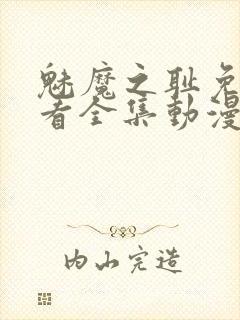 魅魔之耻免
看全集動漫
内山完造